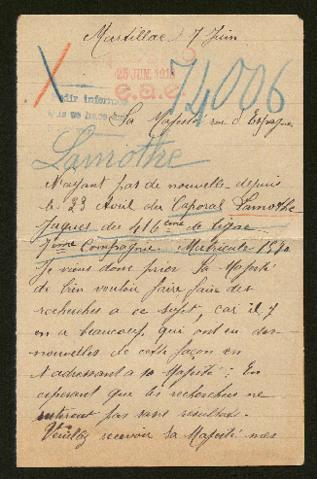 Martillac, 7 Juin
25 JUN. 1918
74006
Pedir informes
Sa Majesté roi d'Espagne
Lamothe
N'ayant pas de nouvelle depuis
le 23 Avril du Caporal Lamothe
Jaques du 416ème de ligne
7ème Compagnie. Matricule
Je viens donc prier Sa Majesté
de bien vouloir faire faire des
recherches a ce sujet, car il y
en a beaucoup qui ont eu des
nouvelles de cette façon en
s'adressant a sa Majesté; En
esperant que les recherches ne
resteront pas sans resultats.
Veuillez recevoir sa Majesté mes